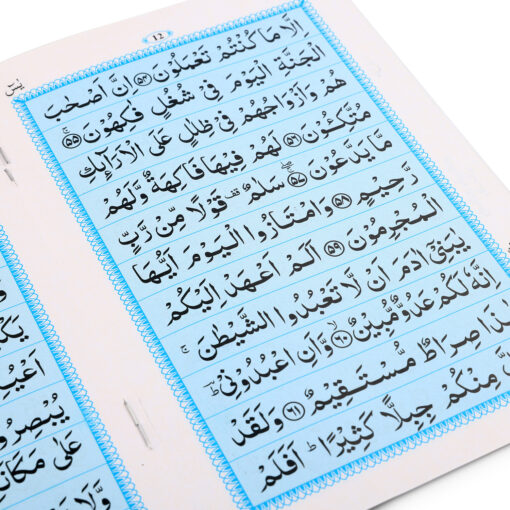 12
اِلَّا مَا كُنْتُمْ تَعْمَلُوْنَ ﴿٥٤﴾ اِنَّ اَصْحٰبَ
الْجَنَّةِ الْيَوْمَ فِيْ شُغُلٍ فٰكِهُوْنَ ﴿٥٥﴾ ج
هُمْ وَاَزْوَاجُهُمْ فِيْ ظِلٰلٍ عَلَى الْاَرَآئِكِ
مُتَّكِـُٔوْنَ ﴿٥٦﴾ لَهُمْ فِيْهَا فَاكِهَةٌ وَّلَهُمْ
مَّا يَدَّعُوْنَ ﴿٥٧﴾ سَلٰمٌ قف قَوْلًا مِّنْ رَّبٍّ
رَّحِيْمٍ ﴿٥٨﴾ وَامْتَازُوا الْيَوْمَ اَيُّهَا
الْمُجْرِمُوْنَ ﴿٥٩﴾ اَلَمْ اَعْهَدْ اِلَيْكُمْ
يٰبَنِيْٓ اٰدَمَ اَنْ لَّا تَعْبُدُوا الشَّيْطٰنَ ج
اِنَّهٗ لَكُمْ عَدُوٌّ مُّبِيْنٌ ﴿٦٠﴾ وَّاَنِ اعْبُدُوْنِيْ ط
هٰذَا صِرَاطٌ مُّسْتَقِيْمٌ ﴿٦١﴾ وَلَقَدْ
مِنْكُمْ جِبِلًّا كَثِيْرًا ط اَفَلَمْ
عَلٰى
وَّلَا